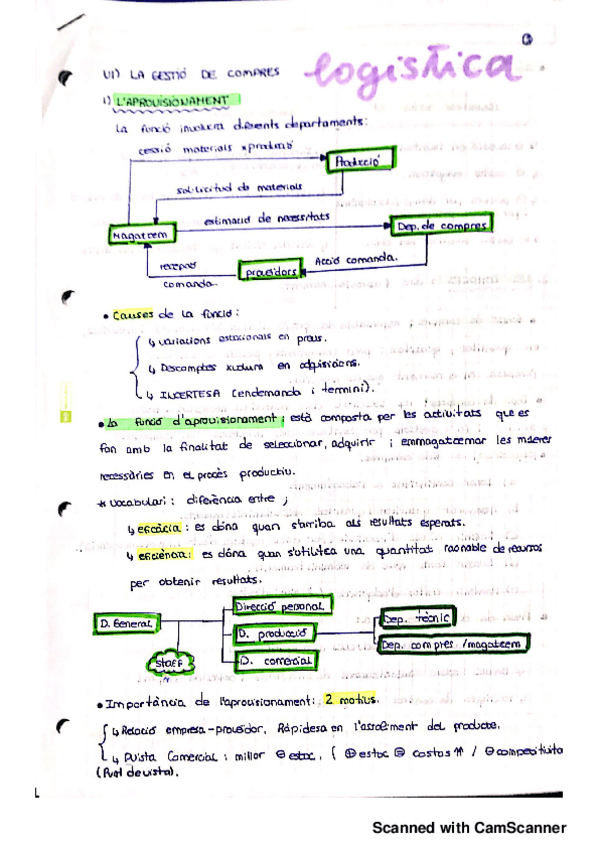 logística
U1) LA GESTIÓ DE COMPRES
1) L'APROVISIONAMENT
La funció involucra diferents departaments:
cessió materials
Producció
sol·licitud de materials
estimació de necessitats
Magatzem
Dep. de compres
recepció
comanda.
proveïdors
Acció comanda.
• Causes de la funció:
↳ variations estacionals en preus.
↳ Descomptes en adquisicions.
↳ INCERTESA (endemanda i termini).
• La funció d'aprovisionament; està composta per les activitats que es
fan amb la finalitat de seleccionar, adquirir i emmagatzemar les
necessàries en el procés productiu.
* Vocabulari: diferència entre;
↳ eficàcia: es dóna quan s'arriba als resultats esperats.
↳ eficiència: es dóna quan s'utilitza una quantitat raonable de recursos
per obtenir resultats.
D. General
Staff
Direcció personal
D. producció
D. comercial
Dep. tècnic
Dep. compres/magatzem
• Importància de l'aprovisionament: 2 motius.
↳ Relació empresa-proveïdor. Ràpidesa en del producte.
↳ Puista Comercial: millor ⊖ estoc. ( ⊕ estoc ⊜ costos ⇈ / ⊖ competitivitat
(Punt de vista).
Scanned with CamScanner